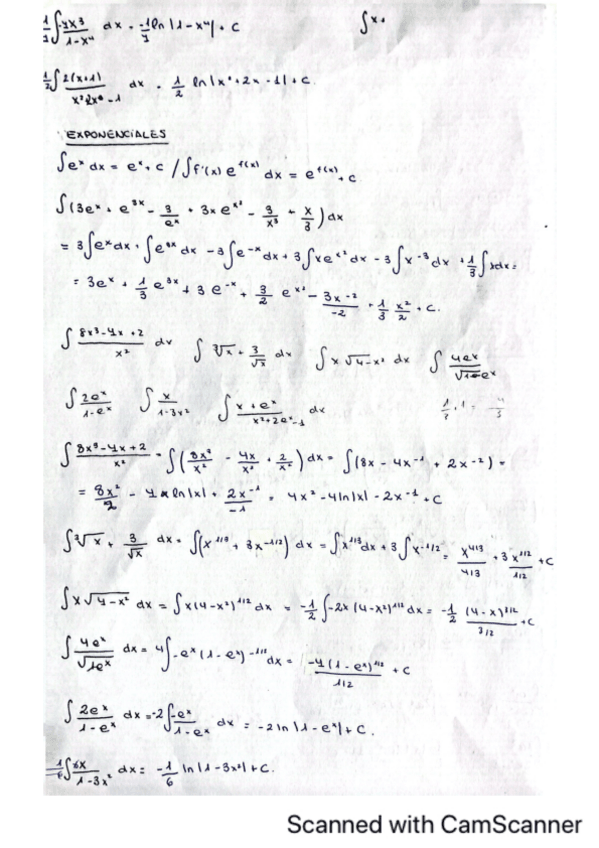 1/4∫ -4x3/1-x⁴ dx = -1/4 ln|1-x⁴| + C ∫x
1/2∫ 2(x+1)/x²+2x-1 dx = 1/2 ln|x²+2x-1| + C.
EXPONENCIALES
∫eˣ dx = eˣ + C / ∫f'(x) e^f(x) dx = e^f(x) + C
∫(3eˣ + e³ˣ - 3/eˣ + 3x eˣ² - 3/x³ + x/3) dx
= 3∫eˣdx + ∫e³ˣ dx - 3∫e⁻ˣdx + 3∫xeˣ² dx - 3∫x⁻³dx + 1/3∫xdx =
= 3eˣ + 1/3 e³ˣ + 3e⁻ˣ + 3/2 eˣ² - 3x⁻²/-2 + 1/3 x²/2 + C.
∫ 8x³-4x+2/x² dx ∫ ³√x + 3/√x dx ∫ x√4-x² dx ∫ 4eˣ/√1-eˣ
∫ 2eˣ/1-eˣ ∫ x/1-3x² ∫ x+eˣ/x²+2eˣ-1 dx
∫ 8x³-4x+2/x² = ∫(8x³/x² - 4x/x² + 2/x²) dx = ∫(8x - 4x⁻¹ + 2x⁻²) =
= 8x²/2 - 4 ln|x| + 2x⁻¹/-1 = 4x² - 4ln|x| - 2x⁻¹ + C
∫³√x + 3/√x dx = ∫(x^1/3 + 3x^-1/2) dx = ∫x^1/3 dx + 3∫x^-1/2 = x^4/3/4/3 + 3x^1/2/1/2 + C
∫x√4-x² dx = ∫x(4-x²)^1/2 dx = -1/2∫-2x(4-x²)^1/2 dx = -1/2 (4-x)^3/2/3/2 + C
∫ 4eˣ/√1-eˣ dx = 4∫-eˣ(1-eˣ)^-1/2 dx = -4(1-eˣ)^1/2/1/2 + C
∫ 2eˣ/1-eˣ dx = -2∫ -eˣ/1-eˣ dx = -2 ln|1-eˣ| + C.
∫ 6x/1-3x² dx = -1/6 ln|1-3x²| + C.
Scanned with CamScanner